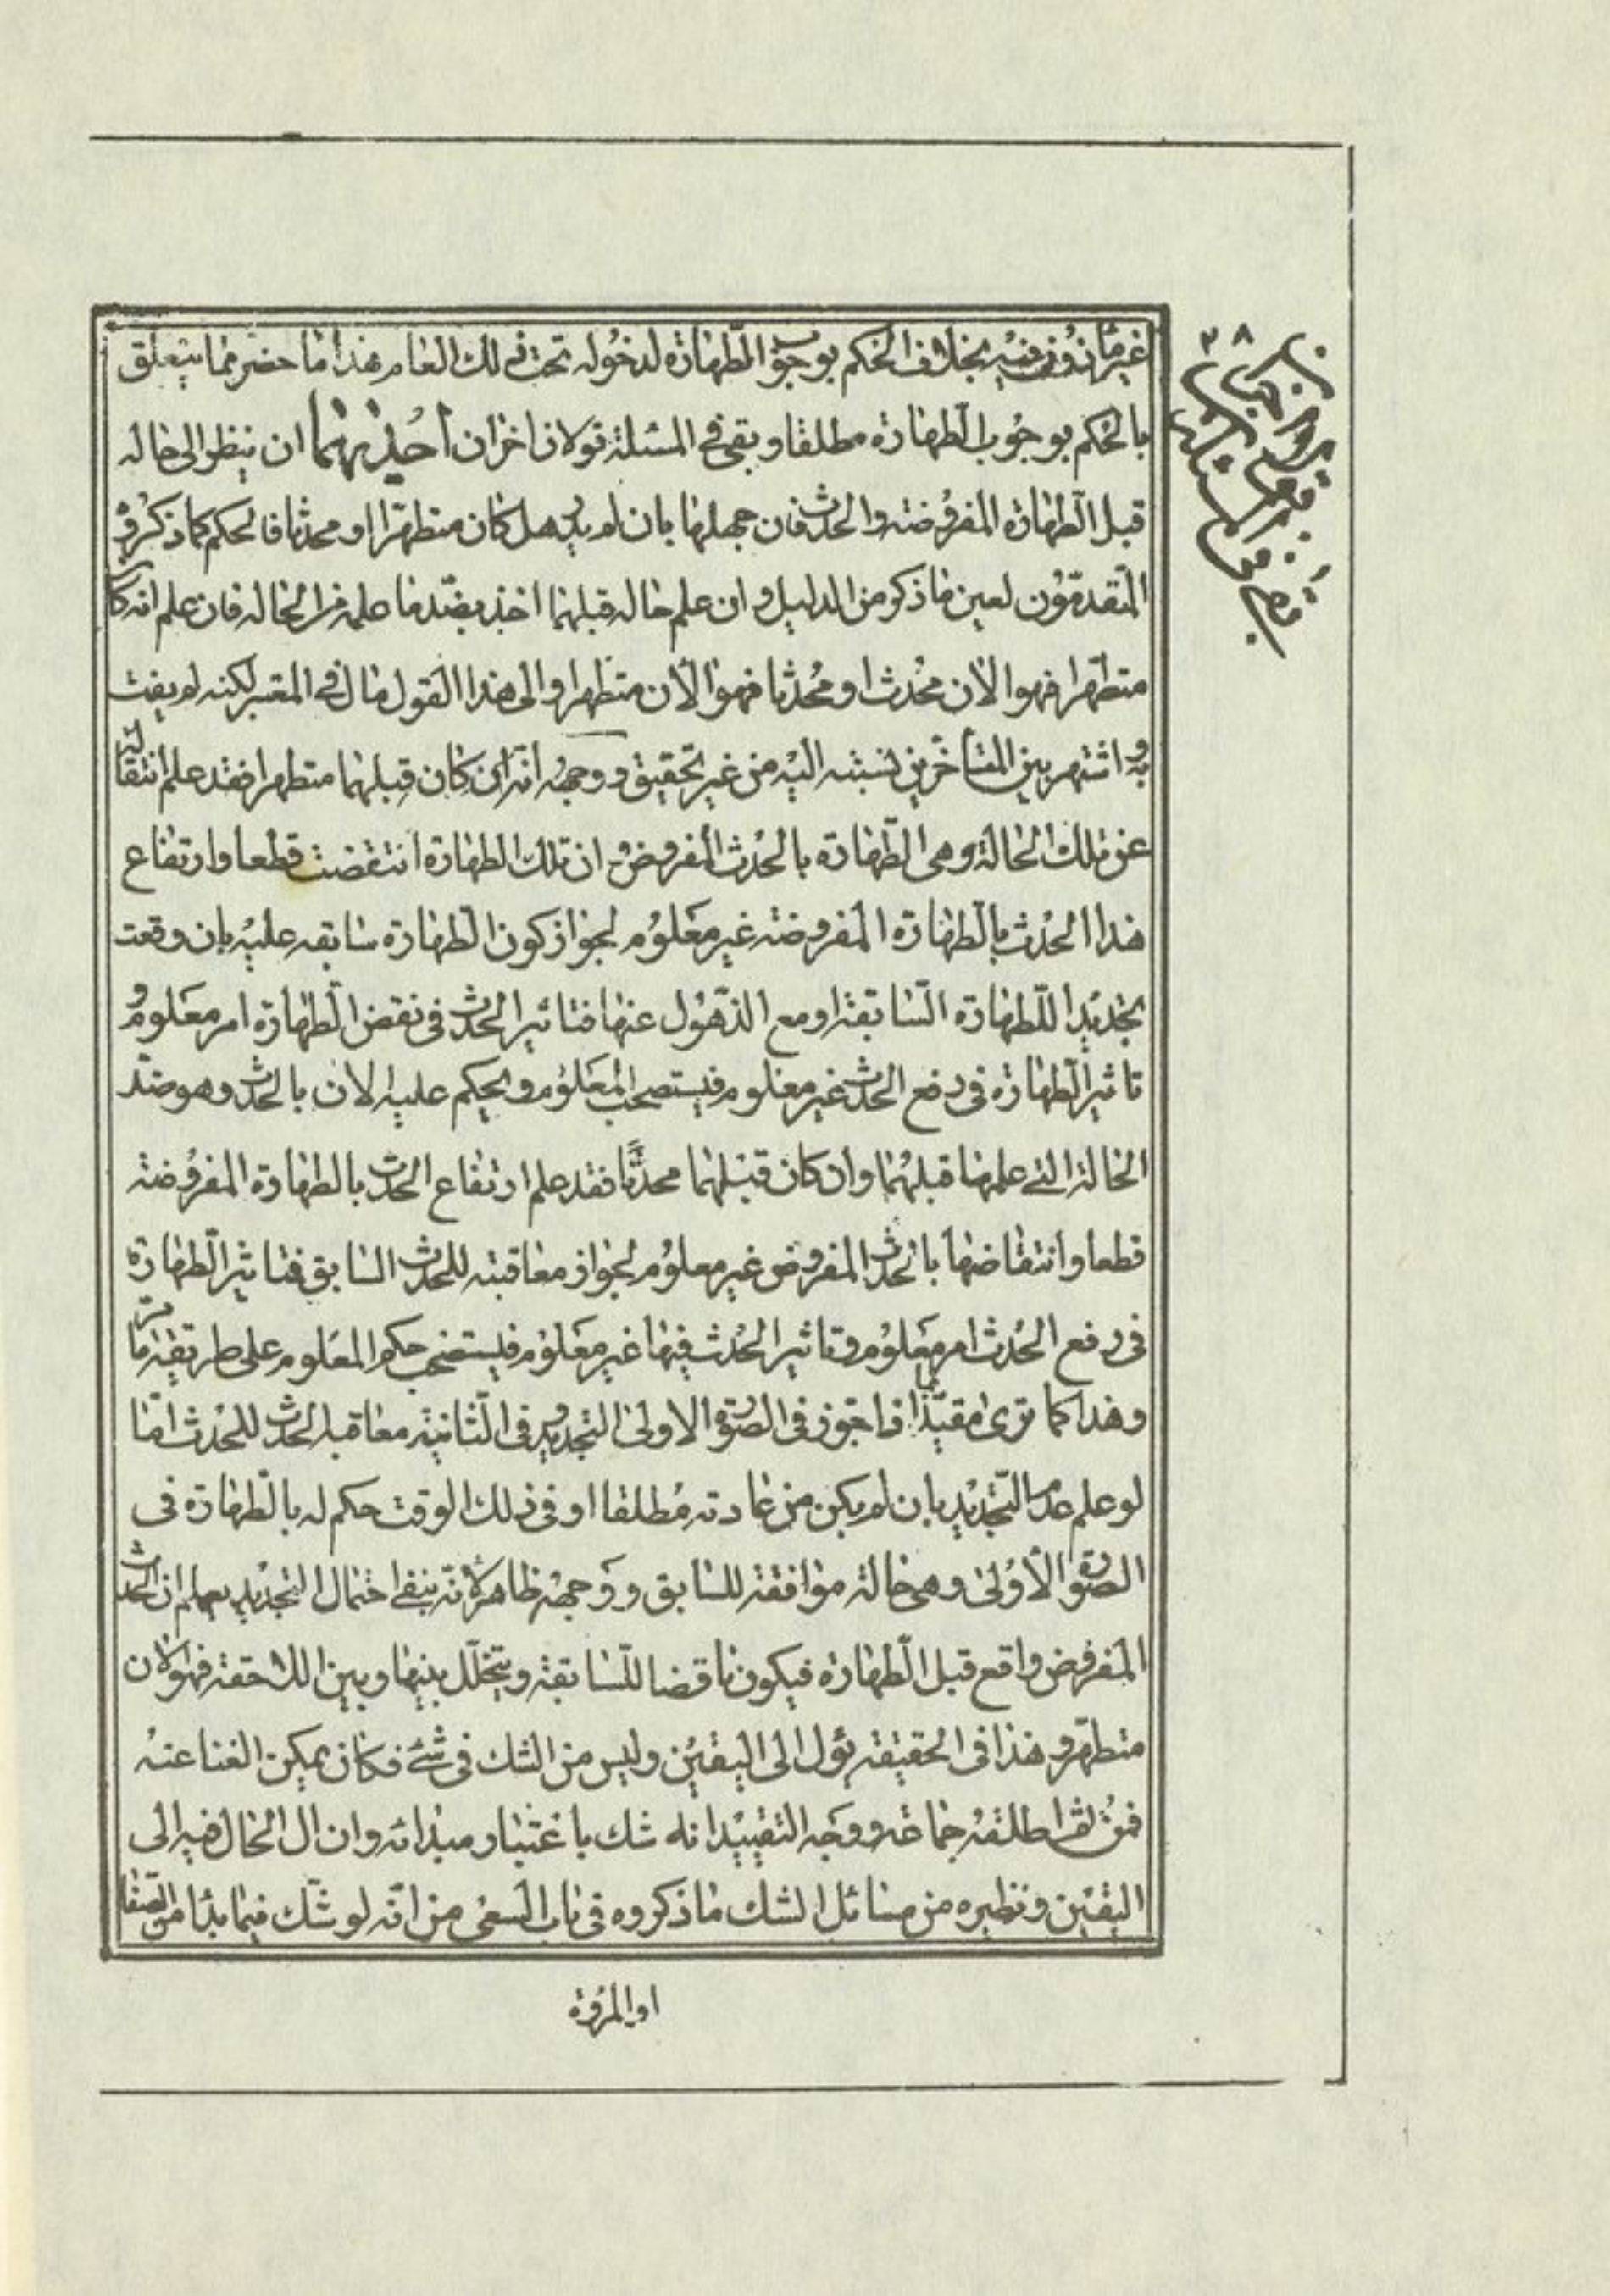 غير مأذون فيه بخلاف الحكم بوجوب الطهارة لدخوله تحت ذلك العام هذا ما حضر مما يتعلق
بالحكم بوجوب الطهارة مطلقا وبقي في المسئلة قولان اخران أحدهما ان ينظر الى حاله
قبل الطهارة المفروضة والحدث فان جهلها بان لم يدر هل كان متطهرا او محدثا فالحكم كما ذكره
المتقدمون لعين ما ذكر من الدليل وان علم حاله قبلهما اخذ بضد ما علمه من الحاله فان علم انه كان
متطهرا فهو الان محدث او محدثا فهو الأن متطهر والى هذا القول مال في المعتبر لكنه لم يفت
به واشتهر بين المتأخرين نسبته اليه من غير تحقيق ووجهه انه ان كان قبلهما متطهرا فقد علم انتقاله
عن تلك الحالة وهى الطهارة بالحدث المفروض وان تلك الطهارة انتقضت قطعا وارتفاع
هذا الحدث بالطهارة المفروضة غير معلوم لجواز كون الطهارة سابقه عليه بان وقعت
تجديدا للطهارة السابقة او مع الذهول عنها فتاثير الحدث فى نقض الطهارة امر معلوم و
تاثير الطهارة فى رفع الحدث غير معلوم فيستصحب المعلوم ويحكم عليه الان بالحدث وهو ضد
الحالة التي علمها قبلهما وان كان قبلهما محدثا فقد علم ارتفاع الحدث بالطهارة المفروضة
قطعا وانتقاضها بالحدث المفروض غير معلوم لجواز معاقبته للحدث السابق فتاثير الطهارة
فى رفع الحدث امر معلوم وتاثير الحدث فيها غير معلوم فيستصحب حكم المعلوم على طريقة ما مر
وهذا كما ترى مقيد بما اذا جوز فى الصورة الاولى التجديد وفى الثانية معاقبه الحدث للحدث امّا
لو علم عدم التجديد بان لم يكن من عادته مطلقا او فى ذلك الوقت حكم له بالطهارة فى
الصورة الأولى وهى حالة موافقة للسابق ووجهه ظاهر لانه بنفي احتمال التجديد يعلم ان الحدث
المفروض واقع قبل الطهارة فيكون ناقضا للسابقة ويتخلل بينها وبين اللاحقة فهو الان
متطهر وهذا فى الحقيقة يؤل الى اليقين وليس من الشك فى شئ فكان يمكن الغنا عنه
فمن ثم اطلقه جماعة ووجه التقييد انه شك باعتبار مبدائه وان ال الحال فيه الى
اليقين ونظيره من مسائل الشك ما ذكروه فى باب السعى من انه لو شك فيما بدا من الصفا
او المروة